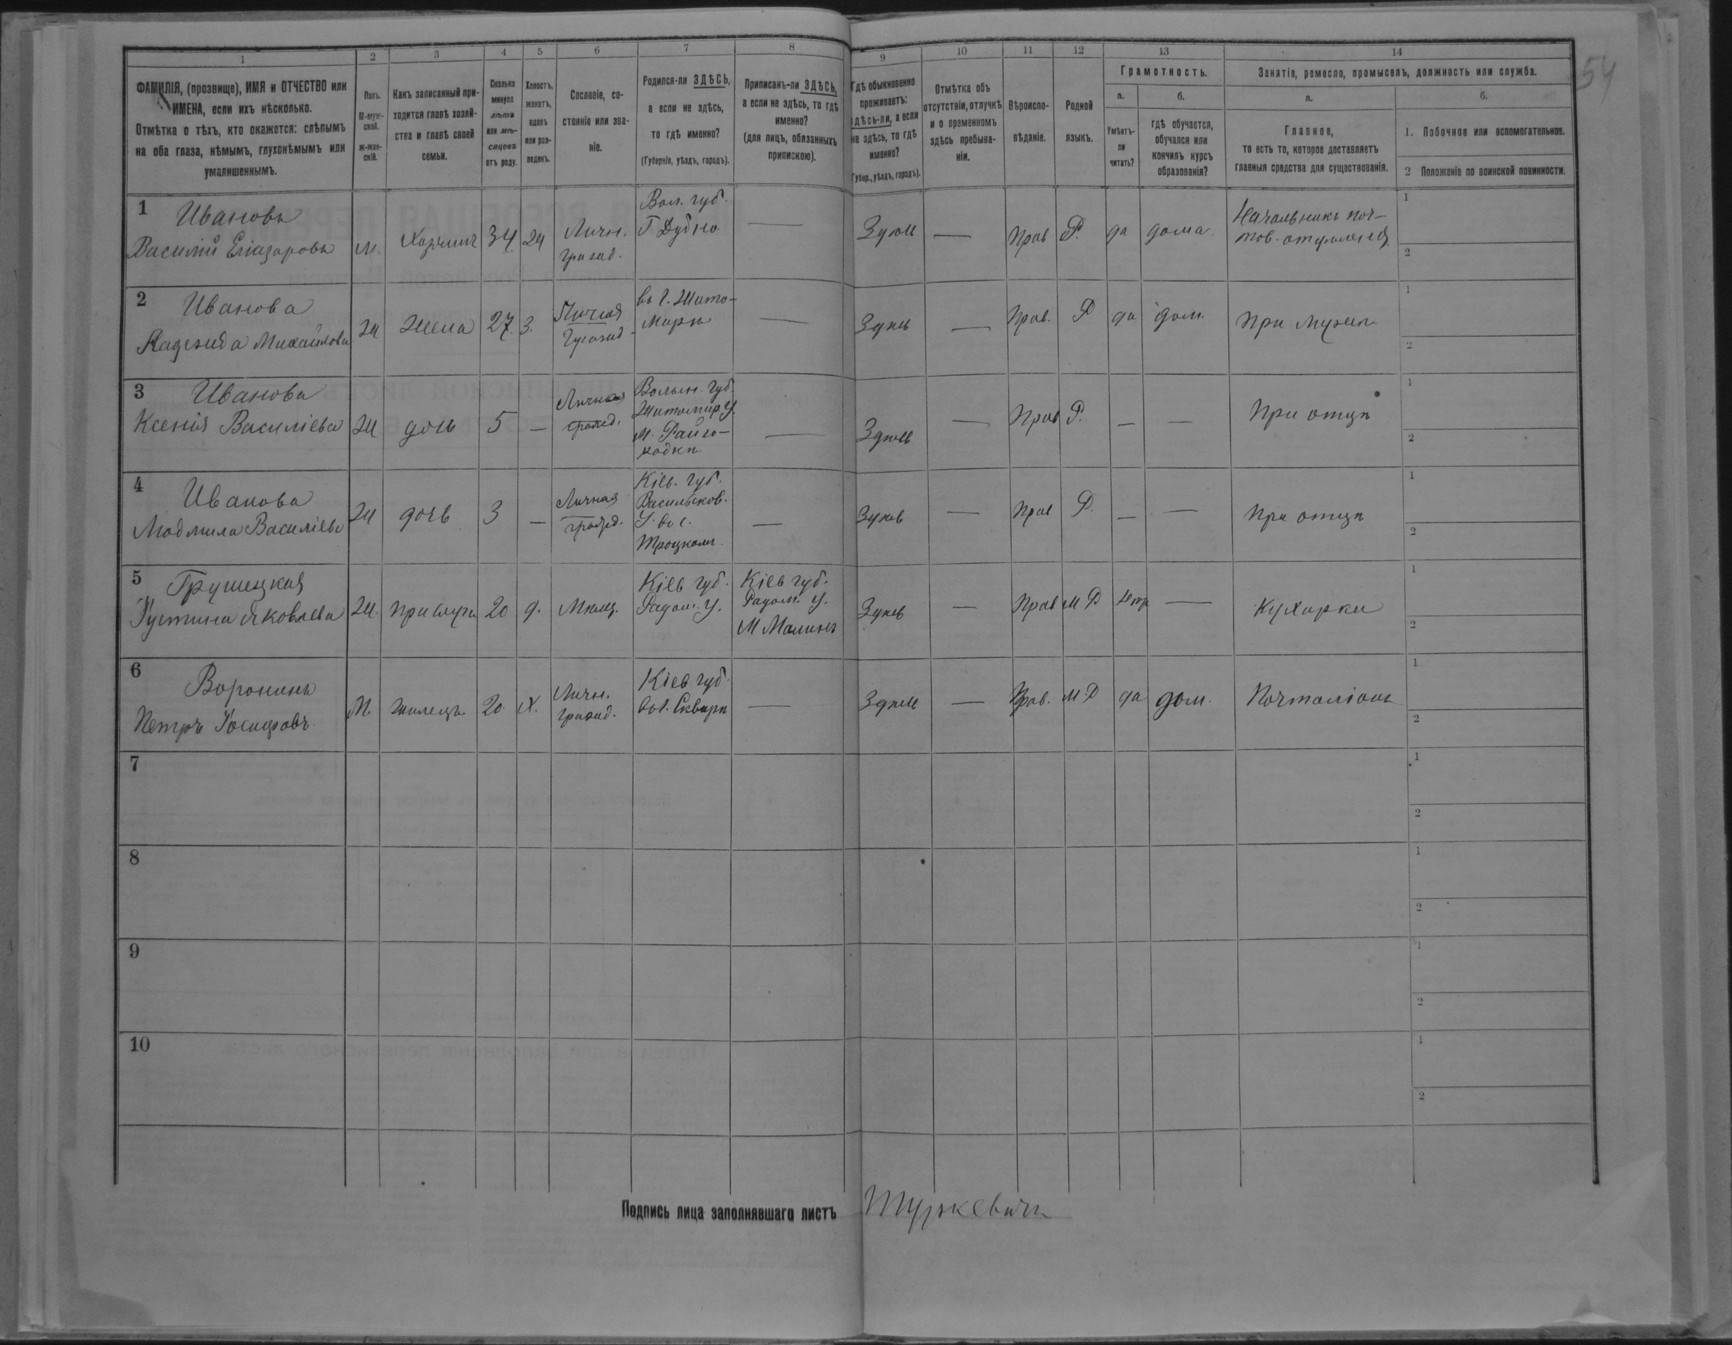 54
1 2 3 4 5 6 7 8 9 10 11 12 13 14
ФАМИЛІЯ, (прозвище), ИМЯ и ОТЧЕСТВО или
ИМЕНА, если ихъ нѣсколько.
Отмѣтка о тѣхъ, кто окажется: слѣпымъ
на оба глаза, нѣмымъ, глухонѣмымъ или
умалишеннымъ.
Полъ.
М-муж-
ской.
Ж-жен-
скій.
Какъ записанный при-
ходится главѣ хозяй-
ства и главѣ своей
семьи.
Сколько
минуло
лѣтъ
или мѣ-
сяцевъ
отъ роду.
Холостъ,
женатъ,
вдовъ
или раз-
веденъ.
Сословіе, со-
стояніе или зва-
ніе.
Родился-ли ЗДѢСЬ,
а если не здѣсь,
то гдѣ именно?
(Губернія, уѣздъ, городъ).
Приписанъ-ли ЗДѢСЬ,
а если не здѣсь, то гдѣ
именно?
(для лицъ, обязанныхъ
припискою).
Гдѣ обыкновенно
проживаетъ:
здѣсь-ли, а если
не здѣсь, то гдѣ
именно?
(Губер., уѣздъ, городъ).
Отмѣтка объ
отсутствіи, отлучкѣ
и о временномъ
здѣсь пребыва-
ніи.
Вѣроиспо-
вѣданіе.
Родной
языкъ.
Грамотность.
а.
Умѣетъ-
ли
читать?
б.
гдѣ обучается,
обучался или
кончилъ курсъ
образованія?
Занятія, ремесло, промыселъ, должность или служба.
а.
Главное,
то есть то, которое доставляетъ
главныя средства для существованія.
б.
1. Побочное или вспомогательное.
2 Положеніе по воинской повинности.
1 Ивановъ
Василій Еліазаровъ М. Хозяинъ 34 Личн.
гражд. Вол. губ.
Г. Дубно — — Прав Р. да дома Начальникъ поч-
тов. отдѣленія
1
2
2 Иванова
Надежда Михайлова Ж Жена 27 З. Личная
гражд. въ г. Жито-
миръ — — Прав. Р да дом. При мужѣ
1
2
3 Иванова
Ксенія Василіева Ж дочь 5 — Личная
гражд. Волын. губ.
Житомир у.
М. Райго-
родкѣ — Здѣсь — Прав Р. — — При отцѣ
1
2
4 Иванова
Людмила Василіева Ж дочь 3 — Личная
гражд. Кіев. губ.
Васильков.
У. во с. — Здѣсь — Прав Р. — — При отцѣ
1
2
5 Грушецкая
Яковлева Ж. прислуга 20 д. Мѣщ. Кіев губ.
Радом. у. Кіев губ.
Радом. у.
М Малинъ Здѣсь — Прав М Р — Кухарка
1
2
6 Воронинъ
Петръ М. жилецъ 20 Х. Личн.
гражд. Кіев губ.
Сквирѣ — Здѣсь — Прав. М Р да дом. Почталіонъ
1
2
7
1
2
8
1
2
9
1
2
10
1
2
Подпись лица заполнявшаго листъ Туркевичъ